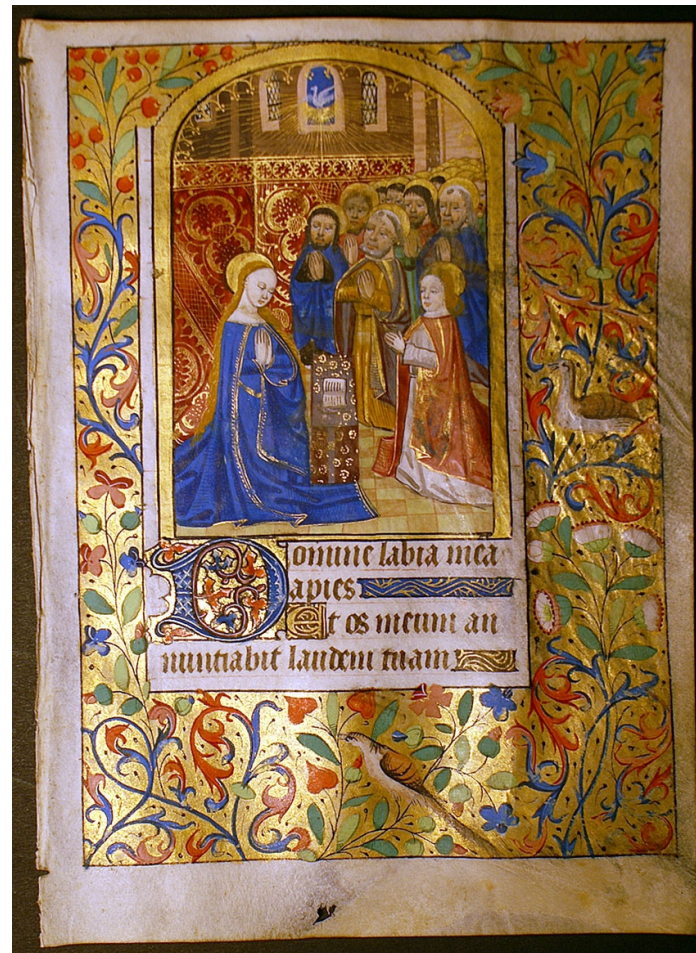 Domine labia mea
apies
Et os meum an
nuntiabit laudem tuam